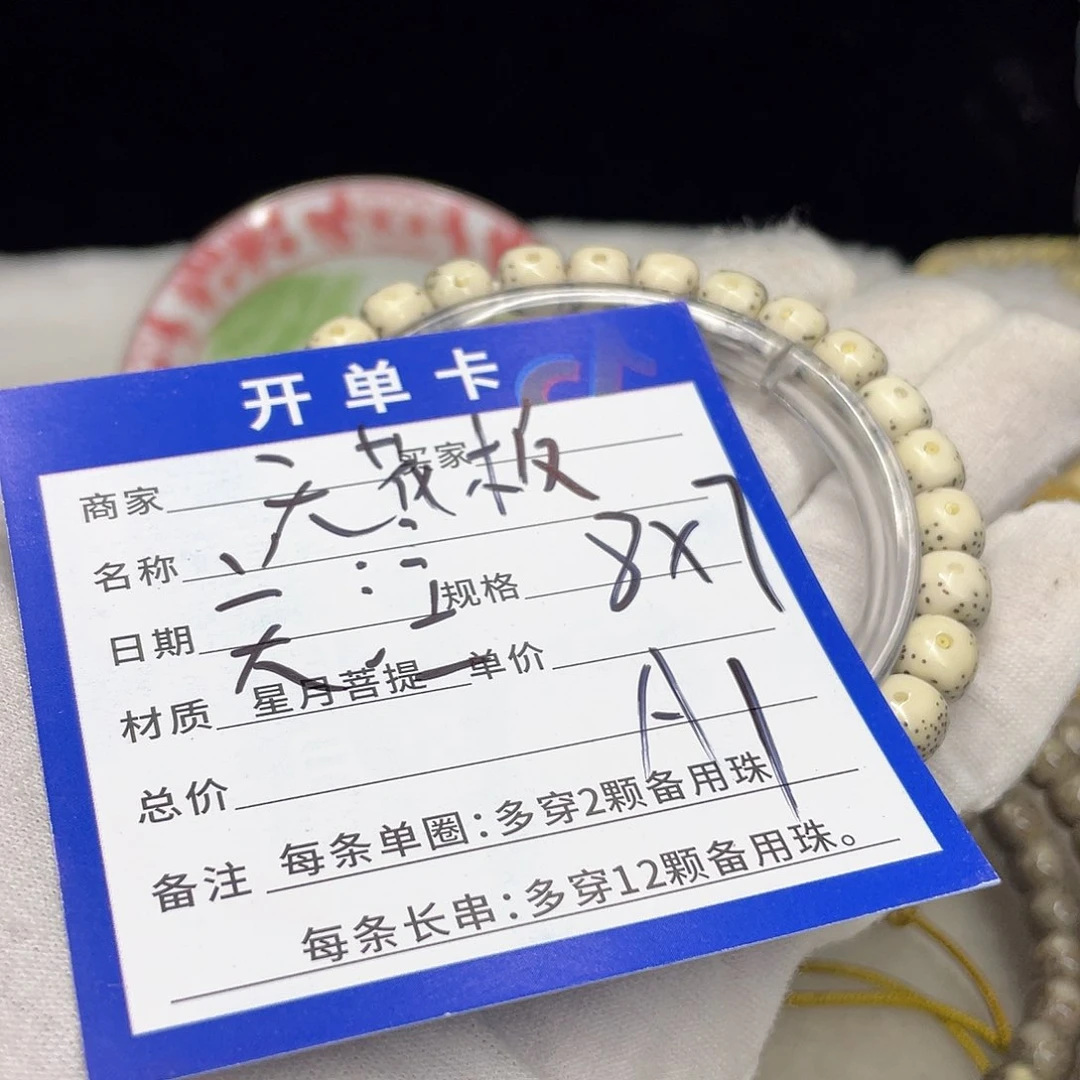 开单卡
商家 买家
天花板
名称
规格 8X7
日期
材质 星月菩提 单价
A1
总价
备注 每条单圈：多穿2颗备用珠
每条长串：多穿12颗备用珠。